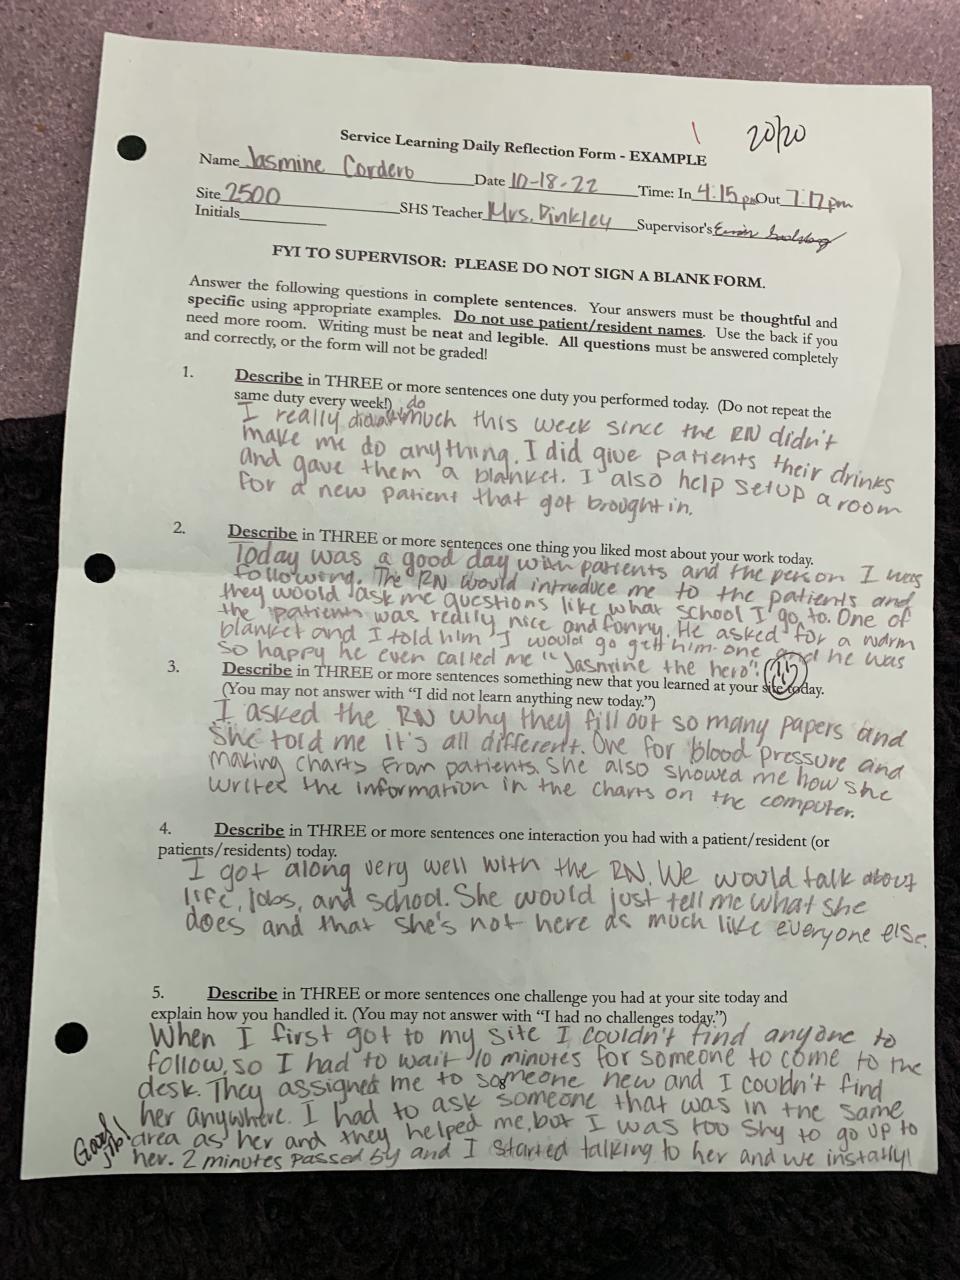 20/20
Service Learning Daily Reflection Form - EXAMPLE
Name Jasmine Cordero Date 10-18-22 Time: In 4:15 pm Out 7:17pm
Site 2500 SHS Teacher Mrs. Dinkley Supervisor's
Initials
FYI TO SUPERVISOR: PLEASE DO NOT SIGN A BLANK FORM.
Answer the following questions in complete sentences. Your answers must be thoughtful and
specific using appropriate examples. Do not use patient/resident names. Use the back if you
need more room. Writing must be neat and legible. All questions must be answered completely
and correctly, or the form will not be graded!
1. Describe in THREE or more sentences one duty you performed today. (Do not repeat the
same duty every week!)
I really didn't do much this week since the RN didn't
make me do anything. I did give patients their drinks
and gave them a blanket. I also help setup a room
for a new patient that got brought in.
2. Describe in THREE or more sentences one thing you liked most about your work today.
Today was a good day with patients and the person I was
following. The RN would introduce me to the patients and
they would ask me questions like what school I go to. One of
the patients was really nice and funny. He asked for a warm
blanket and I told him I would go get him one and he was
so happy he even called me "Jasmine the hero".
3. Describe in THREE or more sentences something new that you learned at your site today.
(You may not answer with "I did not learn anything new today.")
I asked the RN why they fill out so many papers and
she told me it's all different. One for blood pressure and
making charts from patients. She also showed me how she
writes the information in the charts on the computer.
4. Describe in THREE or more sentences one interaction you had with a patient/resident (or
patients/residents) today.
I got along very well with the RN. We would talk about
life, jobs, and school. She would just tell me what she
does and that she's not here as much like everyone else.
5. Describe in THREE or more sentences one challenge you had at your site today and
explain how you handled it. (You may not answer with "I had no challenges today.")
When I first got to my site I couldn't find anyone to
follow, so I had to wait 10 minutes for someone to come to the
desk. They assigned me to someone new and I couldn't find
her anywhere. I had to ask someone that was in the same
area as her and they helped me, but I was too shy to go up to
her. 2 minutes passed by and I started talking to her and we instatly!
Good job!